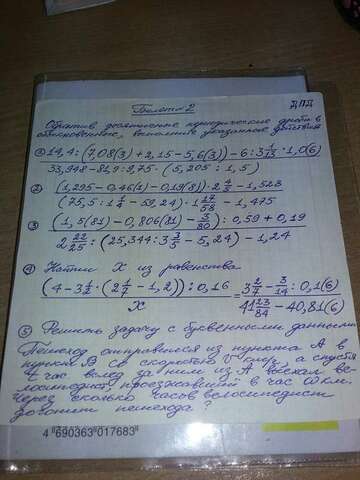 Билет 2 ДПД
Обратив десятичные периодические дроби в
обыкновенные, выполните указанные действия
① 14,4 : (7,08(3) + 2,15 - 5,6(3)) - 6 : 3 1/13 · 1,0(6)
33,948 - 81,9 : 9,75 · (5,205 : 1,5)
② (1,295 - 0,46(1) - 0,19(8)) : 2 - 1,523
(75,5 : 1 - 59,24) · 1 17/58 - 1,475
③ (1,5(81) - 0,806(81) - 3/80) : 0,59 + 0,19
2 22/25 : (25,344 : 3 3/5 - 5,24) - 1,24
④ Найти X из равенства
(4 - 3 1/2 · (2 1/7 - 1,2)) : 0,16 = 3 2/7 - 3/14 : 0,1(6)
X 41 23/84 - 40,81(6)
⑤ Решить задачу с буквенными данными
Пешеход отправился из пункта A в
пункт B со скоростью v, а спустя
час вслед за ним из A выехал ве-
лосипедист, проезжавший в час км.
Через сколько часов велосипедист
догонит пешехода?
4 690363 017683